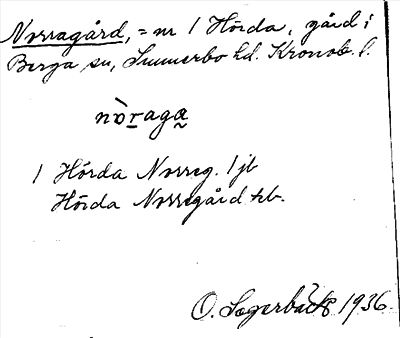 Norragård, = nr 1 Hörda, gård i
Berga sn, Sunnerbo hd. Kronob. l.
nòraga
1 Hörda Norreg. 1 jb
Hörda Norregård kb.
O. Sagerbäck 1936.